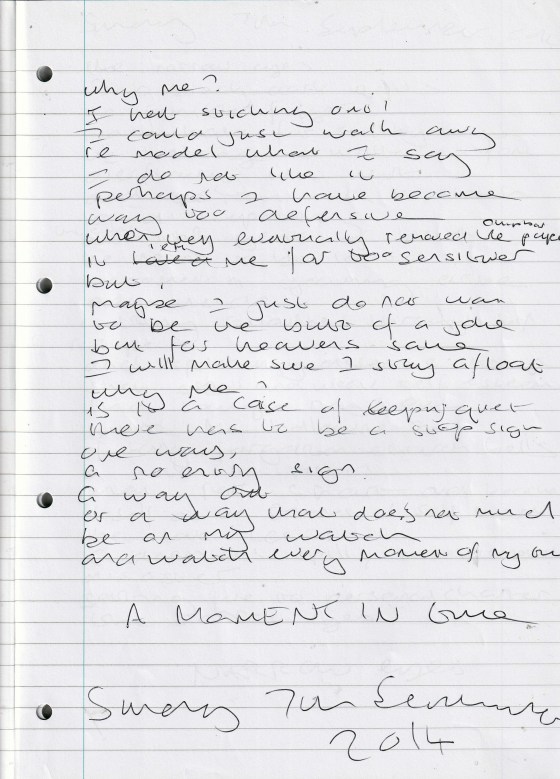 why me?
I hate sticking out!
I could just walk away
re model what I say
I do not like it
perhaps I have become
way too defensive
when they eventually removed the paper
it left me far too sensitive
but,
maybe I just do not want
to be the butt of a joke
but for heavens sake
I will make sure I stay afloat
why me?
is it a case of keeping quiet
there has to be a stop sign
one way,
a no entry sign.
a way out
or a way that does not much
be on my watch
and watch every moment of my
A MOMENT IN time
Sunday 7th
2014